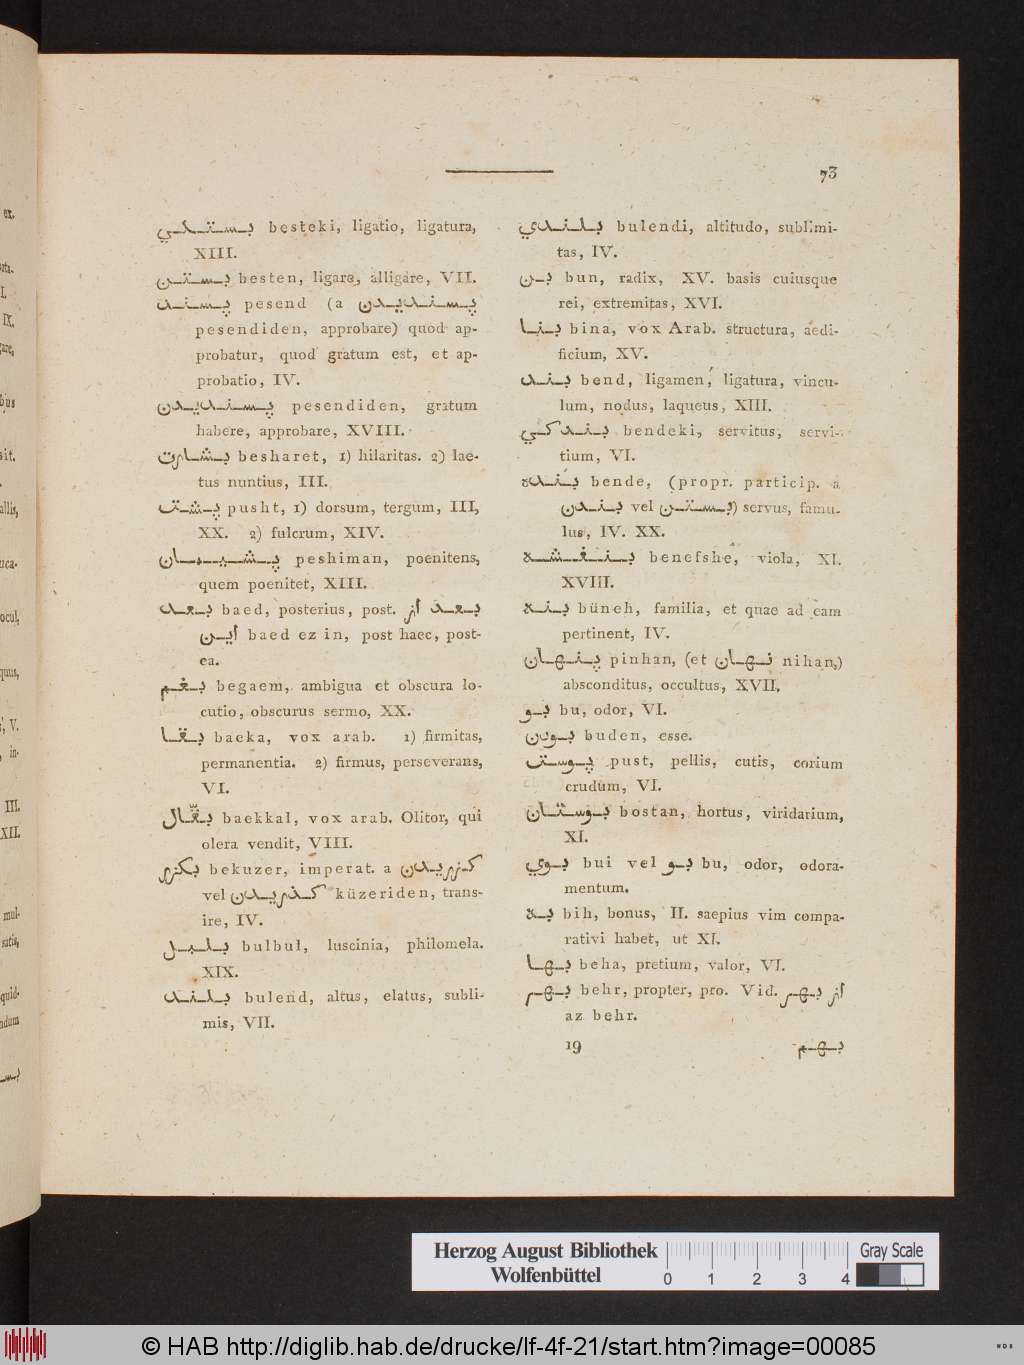 73
بستكي besteki, ligatio, ligatura,
XIII.
بستن besten, ligare, alligare, VII.
پسند pesend (a پسنديدن
pesendiden, approbare) quod ap-
probatur, quod gratum est, et ap-
probatio, IV.
پسنديدن pesendiden, gratum
habere, approbare, XVIII.
بشارت besharet, 1) hilaritas. 2) lae-
tus nuntius, III.
پشت pusht, 1) dorsum, tergum, III,
XX. 2) fulcrum, XIV.
پشيمان peshiman, poenitens,
quem poenitet, XIII.
بعد baed, posterius, post. بعد از
اين baed ez in, post haec, post-
ea.
بغم begaem, ambigua et obscura lo-
cutio, obscurus sermo, XX.
بقا baeka, vox arab. 1) firmitas,
permanentia. 2) firmus, perseverans,
VI.
بقّال baekkal, vox arab. Olitor, qui
olera vendit, VIII.
بكزر bekuzer, imperat. a كزريدن
vel كذريدن küzeriden, trans-
ire, IV.
بلبل bulbul, luscinia, philomela.
XIX.
بلند bulend, altus, elatus, subli-
mis, VII.
بلندي bulendi, altitudo, sublimi-
tas, IV.
بن bun, radix, XV. basis cuiusque
rei, extremitas, XVI.
بنا bina, vox Arab. structura, aedi-
ficium, XV.
بند bend, ligamen, ligatura, vincu-
lum, nodus, laqueus, XIII.
بندكي bendeki, servitus, servi-
tium, VI.
بنده bende, (propr. particip. a
بندن vel بستن) servus, famu-
lus, IV. XX.
بنفشه benefshe, viola, XI.
XVIII.
بنه büneh, familia, et quae ad eam
pertinent, IV.
پنهان pinhan, (et نهان nihan,)
absconditus, occultus, XVII.
بو bu, odor, VI.
بودن buden, esse.
پوست pust, pellis, cutis, corium
crudum, VI.
بوستان bostan, hortus, viridarium,
XI.
بوي bui vel بو bu, odor, odora-
mentum.
به bih, bonus, II. saepius vim compa-
rativi habet, ut XI.
بها beha, pretium, valor, VI.
بهر behr, propter, pro. Vid. از بهر
az behr.
19 بهم
Herzog August Bibliothek
Wolfenbüttel
0 1 2 3 4
Gray Scale
© HAB http://diglib.hab.de/drucke/lf-4f-21/start.htm?image=00085